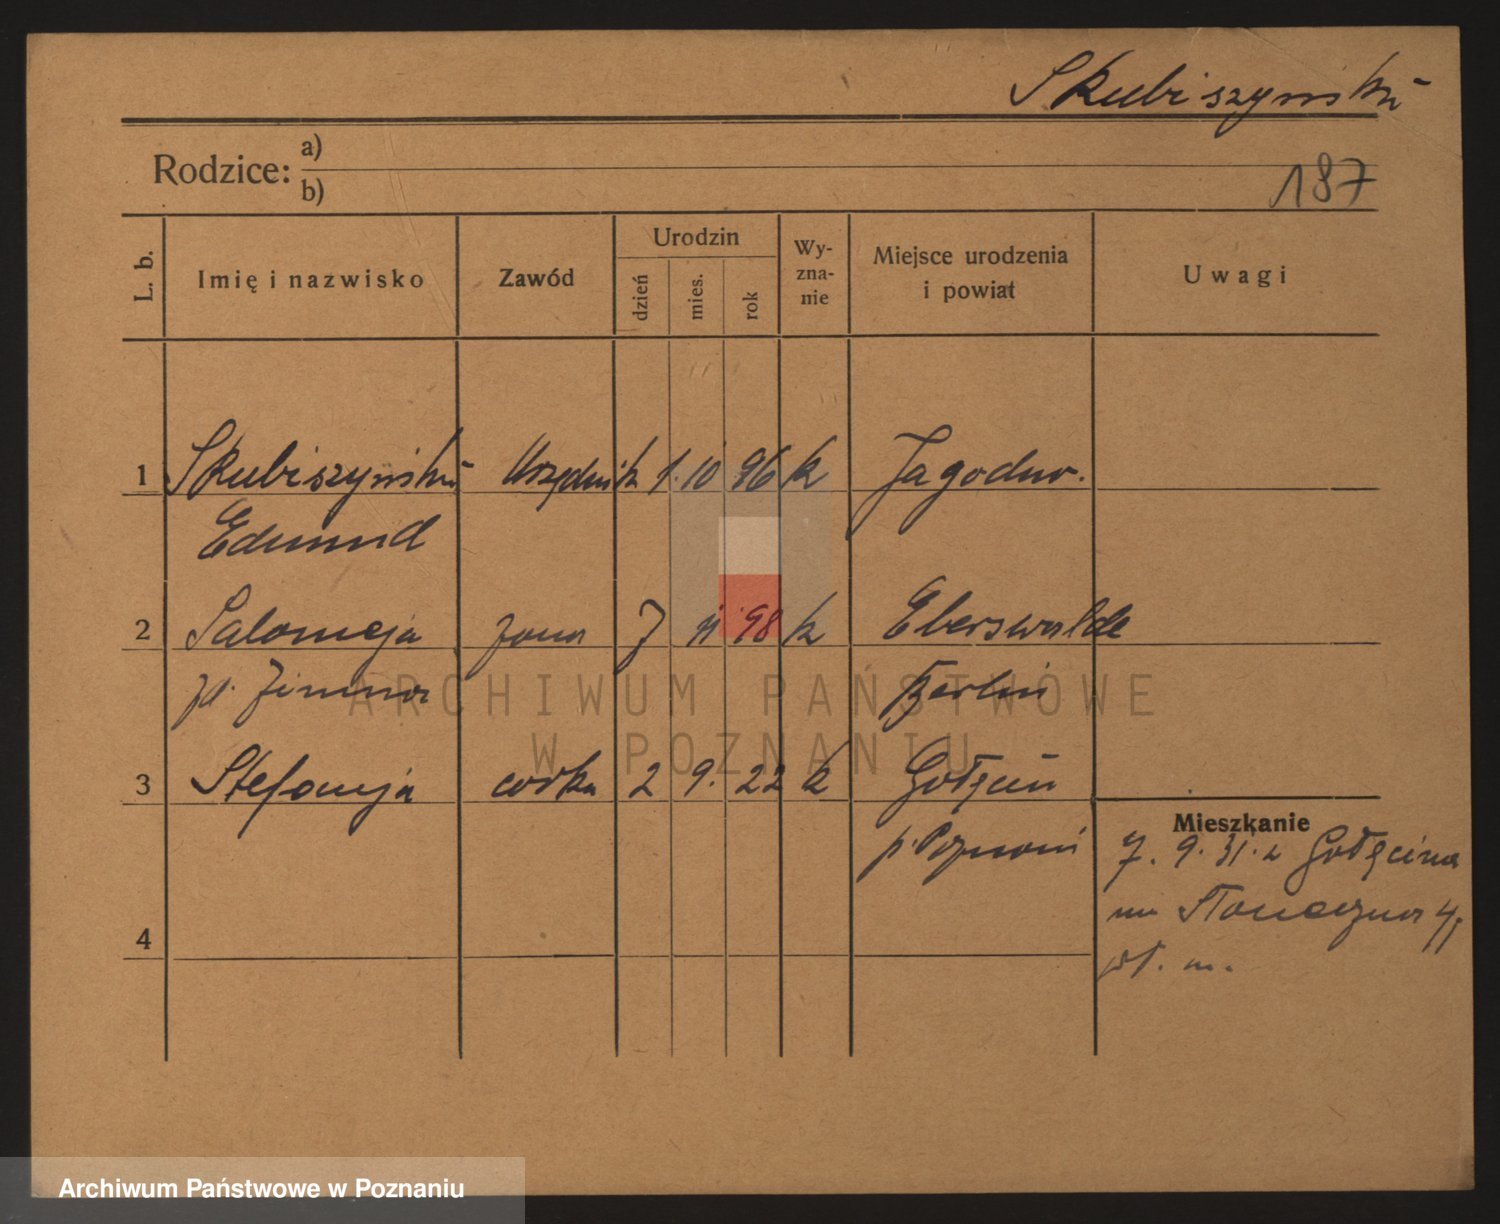 Skubiszyński
Rodzice: a)
b)
187
L. b.
Imię i nazwisko
Zawód
Urodzin
dzień
mies.
rok
Wy-
zna-
nie
Miejsce urodzenia
i powiat
Uwagi
1 Skubiszyński Urzędnik 1. 10 96 k Jagodno.
Edmund
2 Salomeja żona 7 11 98 k Eberswalde
Zimna Berlin
3 Stefanja córka 2 9. 22 k Gołęcin
p. Poznań
Mieszkanie
7. 9. 31. z Gołęcina
na Słoneczna
4
m.
ARCHIWUM PAŃSTWOWE
W POZNANIU
Archiwum Państwowe w Poznaniu